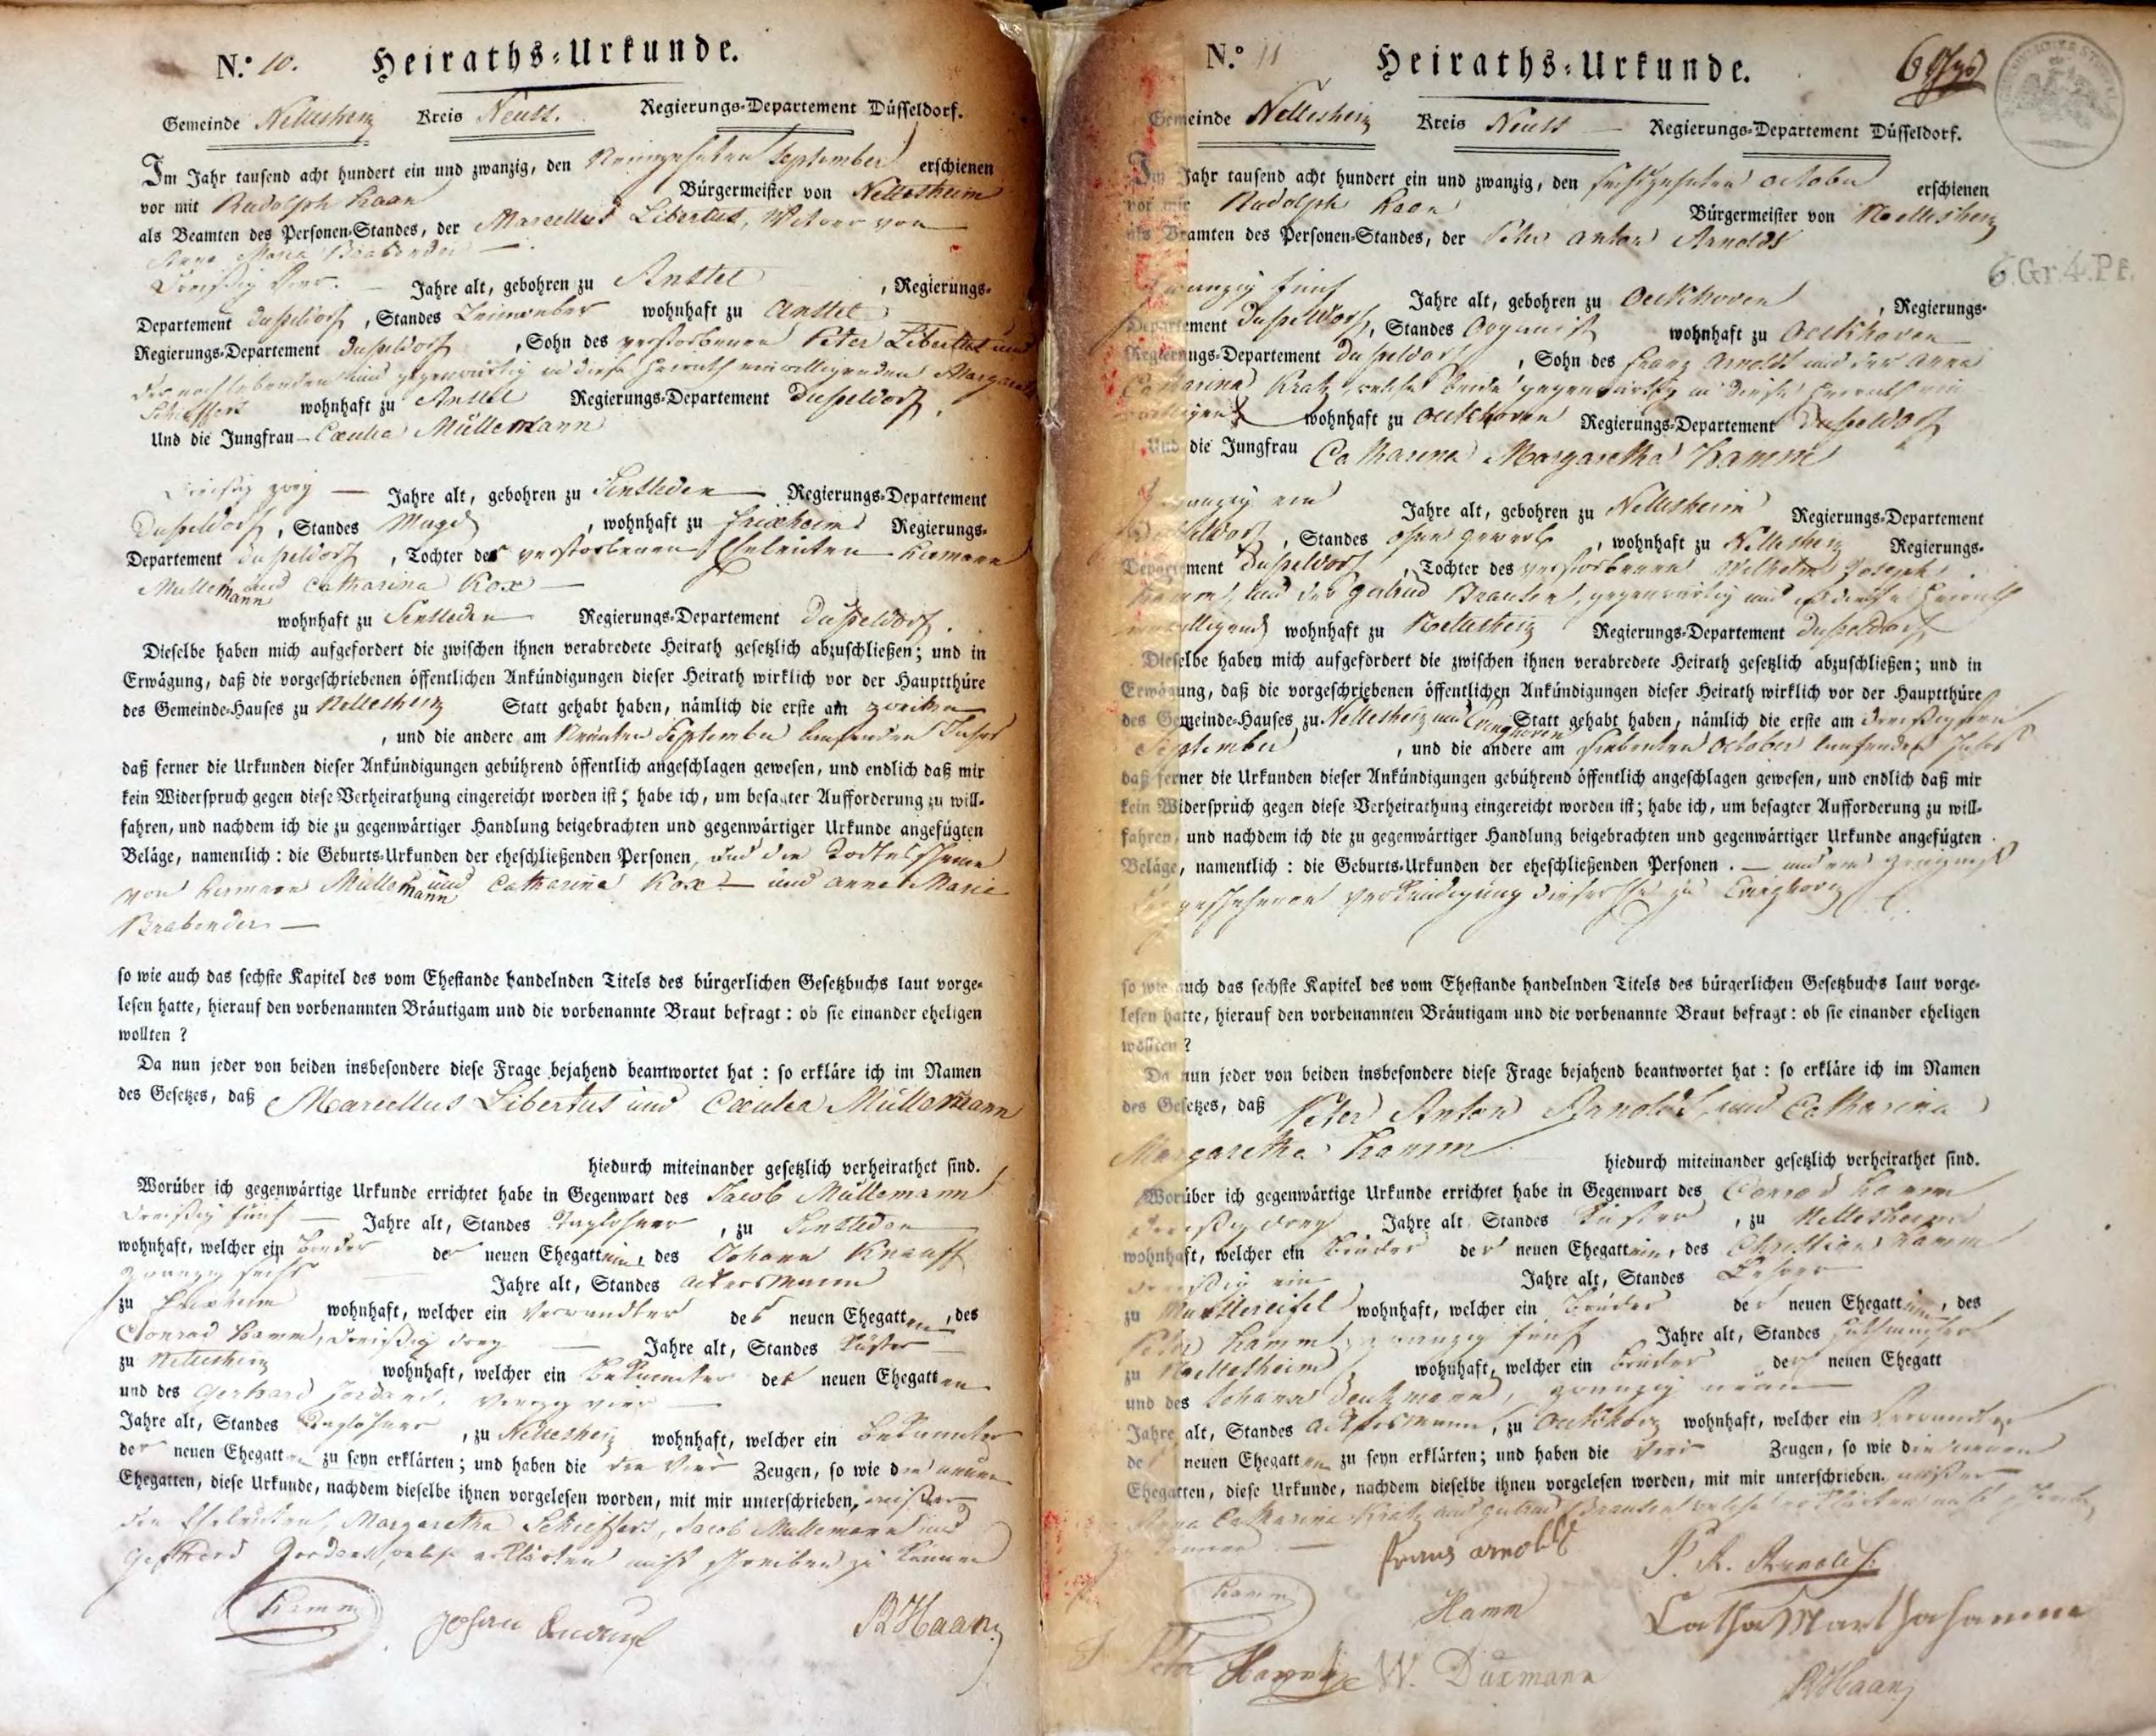 N.º 10. Heiraths-Urkunde.
Gemeinde Nettesheim Kreis Neuss. Regierungs-Departement Düsseldorf.
Im Jahr tausend acht hundert ein und zwanzig, den Neunzehnten September erschienen
vor mir Rudolph Haan Bürgermeister von Nettesheim
als Beamten des Personen-Standes, der Marcellus Libertus, Witwer von
Anna Maria Brabender
Dreißig Vier. Jahre alt, gebohren zu Anstel, Regierungs-
Departement Dusseldorf, Standes Leineweber wohnhaft zu Anstel
Regierungs-Departement Dusseldorf, Sohn des verstorbenen Peter Libertus und
der noch lebenden und gegenwärtig in diese Heirath einwilligenden Margaretha
Schieffers wohnhaft zu Anstel Regierungs-Departement Dusseldorf.
Und die Jungfrau Cæcilia Müllemann
Dreißig zwey — Jahre alt, gebohren zu Sinsteden Regierungs-Departement
Dusseldorf, Standes Magd, wohnhaft zu Frixheim Regierungs-
Departement Dusseldorf, Tochter der verstorbenen Eheleuten Hermann
Mullemann und Catharina Kox —
wohnhaft zu Sinsteden Regierungs-Departement Dusseldorf.
Dieselbe haben mich aufgefordert die zwischen ihnen verabredete Heirath gesetzlich abzuschließen; und in
Erwägung, daß die vorgeschriebenen öffentlichen Ankündigungen dieser Heirath wirklich vor der Hauptthüre
des Gemeinde-Hauses zu Nettesheim Statt gehabt haben, nämlich die erste am zweiten
, und die andere am Neunten September laufenden Jahrs
daß ferner die Urkunden dieser Ankündigungen gebührend öffentlich angeschlagen gewesen, und endlich daß mir
kein Widerspruch gegen diese Verheirathung eingereicht worden ist; habe ich, um besagter Aufforderung zu will-
fahren, und nachdem ich die zu gegenwärtiger Handlung beigebrachten und gegenwärtiger Urkunde angefügten
Beläge, namentlich: die Geburts-Urkunden der eheschließenden Personen, und die Todtesscheine
von Hermann Müllemann und Catharina Kox — und Anna Maria
Brabender —
so wie auch das sechste Kapitel des vom Ehestande handelnden Titels des bürgerlichen Gesetzbuchs laut vorge-
lesen hatte, hierauf den vorbenannten Bräutigam und die vorbenannte Braut befragt: ob sie einander eheligen
wollten?
Da nun jeder von beiden insbesondere diese Frage bejahend beantwortet hat: so erkläre ich im Namen
des Gesetzes, daß Marcellus Libertus und Cæcilia Müllemann
hiedurch miteinander gesetzlich verheirathet sind.
Worüber ich gegenwärtige Urkunde errichtet habe in Gegenwart des Jacob Müllemann
Dreißig fünf — Jahre alt, Standes Taglohner, zu Sinsteden
wohnhaft, welcher ein Bruder der neuen Ehegattin, des Johann Knauff
zwanzig sechs Jahre alt, Standes Ackersmann
zu Frixheim wohnhaft, welcher ein Verwandter des neuen Ehegatten, des
Conrad Hamm, dreißig drey Jahre alt, Standes Küster
zu Nettesheim wohnhaft, welcher ein Bekannter der neuen Ehegatten
und des Gerhard Jordans, vierzig vier —
Jahre alt, Standes Taglohner, zu Nettesheim wohnhaft, welcher ein Bekannter
der neuen Ehegatten zu seyn erklärten; und haben die die Vier Zeugen, so wie die neuen
Ehegatten, diese Urkunde, nachdem dieselbe ihnen vorgelesen worden, mit mir unterschrieben, außer
den Eheleuten, Margaretha Schieffers, Jacob Mullemann und
Gerhard Jordans, welche erklärten nicht schreiben zu können
Hamm Johan Knauf RHaan
N.º 11 Heiraths-Urkunde.
6 Gr. 4. Pf.
Gemeinde Nettesheim Kreis Neuss — Regierungs-Departement Düsseldorf.
Im Jahr tausend acht hundert ein und zwanzig, den sechszehnten October erschienen
vor mir Rudolph Haan Bürgermeister von Nettesheim
als Beamten des Personen-Standes, der Peter Anton Arnolds
zwanzig fünf Jahre alt, gebohren zu Oeckhoven, Regierungs-
Departement Dusseldorf, Standes Organist wohnhaft zu Oeckhoven
Regierungs-Departement Dusseldorf, Sohn des Franz Arnolds und der Anna
Catharina Kratz, welche beide gegenwärtig in diese Heirath ein
willigend wohnhaft zu Oeckhoven Regierungs-Departement Dusseldorf
Und die Jungfrau Catharina Margaretha Hamm
zwanzig ein Jahre alt, gebohren zu Nettesheim Regierungs-Departement
Dusseldorf, Standes ohne Gewerb, wohnhaft zu Nettesheim Regierungs-
Departement Dusseldorf, Tochter des verstorbenen Wilhelm Joseph
Hamm, und der Gertrud Brausen, gegenwärtig und in diese Heirath
einwilligend wohnhaft zu Nettesheim Regierungs-Departement Dusseldorf
Dieselbe haben mich aufgefordert die zwischen ihnen verabredete Heirath gesetzlich abzuschließen; und in
Erwägung, daß die vorgeschriebenen öffentlichen Ankündigungen dieser Heirath wirklich vor der Hauptthüre
des Gemeinde-Hauses zu Nettesheim und Evinghoven Statt gehabt haben, nämlich die erste am dreißigsten
September, und die andere am siebenten October laufenden Jahrs
daß ferner die Urkunden dieser Ankündigungen gebührend öffentlich angeschlagen gewesen, und endlich daß mir
kein Widerspruch gegen diese Verheirathung eingereicht worden ist; habe ich, um besagter Aufforderung zu will-
fahren, und nachdem ich die zu gegenwärtiger Handlung beigebrachten und gegenwärtiger Urkunde angefügten
Beläge, namentlich: die Geburts-Urkunden der eheschließenden Personen. — und ein Zeugniß
geschehener Verkündigung dieser Ehe zu Evinghoven
so wie auch das sechste Kapitel des vom Ehestande handelnden Titels des bürgerlichen Gesetzbuchs laut vorge-
lesen hatte, hierauf den vorbenannten Bräutigam und die vorbenannte Braut befragt: ob sie einander eheligen
wollten?
Da nun jeder von beiden insbesondere diese Frage bejahend beantwortet hat: so erkläre ich im Namen
des Gesetzes, daß Peter Anton Arnolds, und Catharina
Margaretha Hamm hiedurch miteinander gesetzlich verheirathet sind.
Worüber ich gegenwärtige Urkunde errichtet habe in Gegenwart des Conrad Hamm
dreißig drey Jahre alt, Standes Küster, zu Nettesheim
wohnhaft, welcher ein Bruder der neuen Ehegattin, des Christian Hamm
dreißig ein Jahre alt, Standes Lehrer
zu wohnhaft, welcher ein Bruder der neuen Ehegattin, des
Peter Hamm zwanzig fünf Jahre alt, Standes
zu Nettesheim wohnhaft, welcher ein Bruder der neuen Ehegatt
und des Johann, zwanzig neun
Jahre alt, Standes Ackersmann, zu Oeckhoven wohnhaft, welcher ein Verwandter
der neuen Ehegatten zu seyn erklärten; und haben die Vier Zeugen, so wie die neuen
Ehegatten, diese Urkunde, nachdem dieselbe ihnen vorgelesen worden, mit mir unterschrieben. außer
Anna Catharina Kratz und Gertrud Brausen welche erklärten nicht schreiben
zu können. — Franz Arnolds P. A. Arnolds.
Hamm Hamm Catha Martha Hamm
Peter Hamm W. Duxmann RHaan